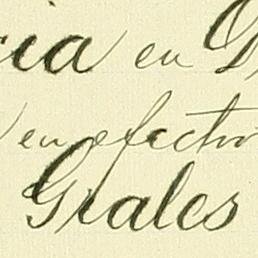 cia en
en efectivo
Grales